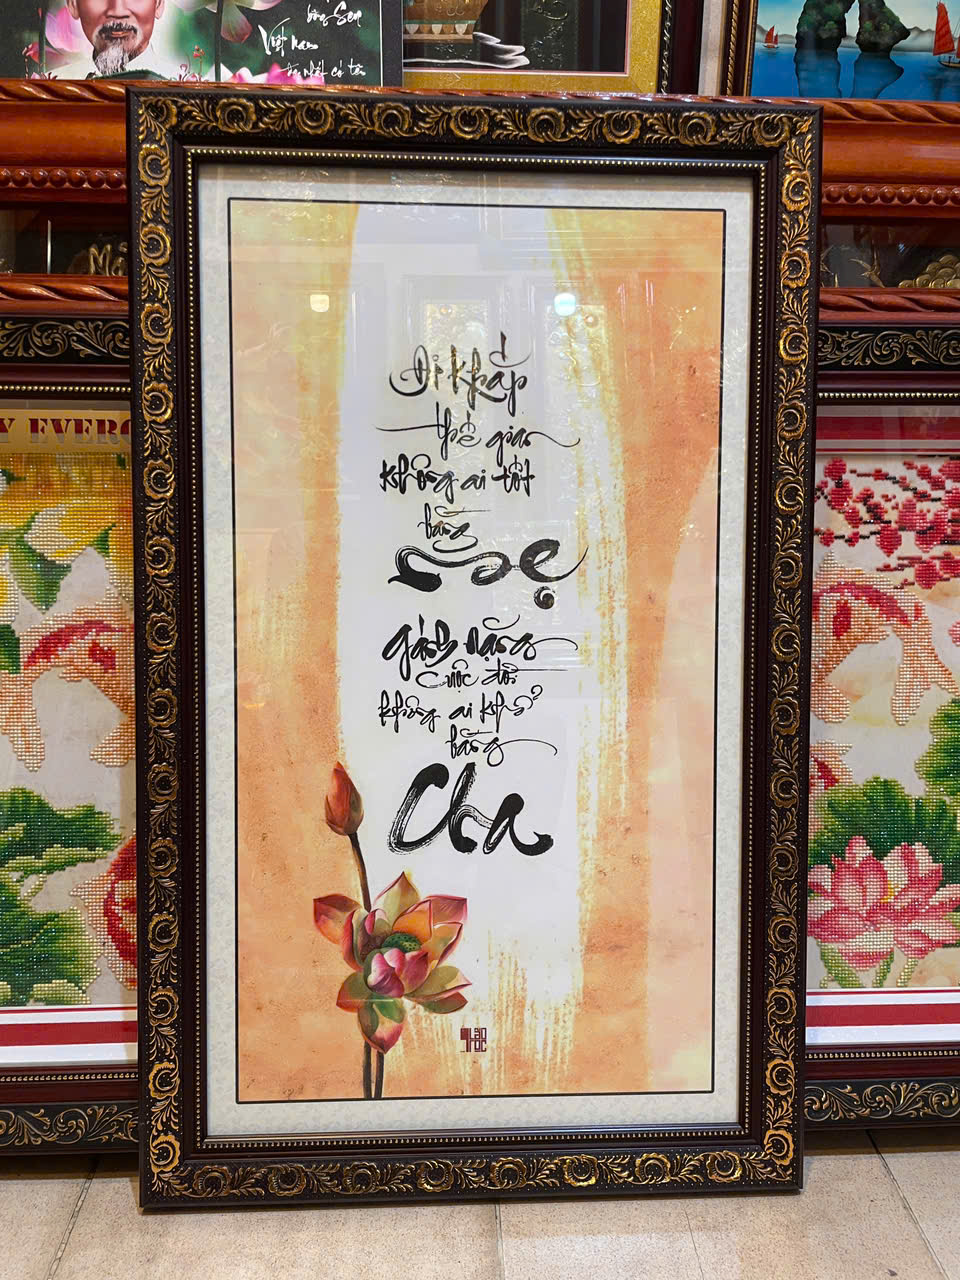 bông Sen
Việt Nam
Y EVERG
Đi khắp
thế gian
không ai tốt
bằng
Mẹ
gánh nặng
cuộc đời
không ai khổ
bằng
Cha